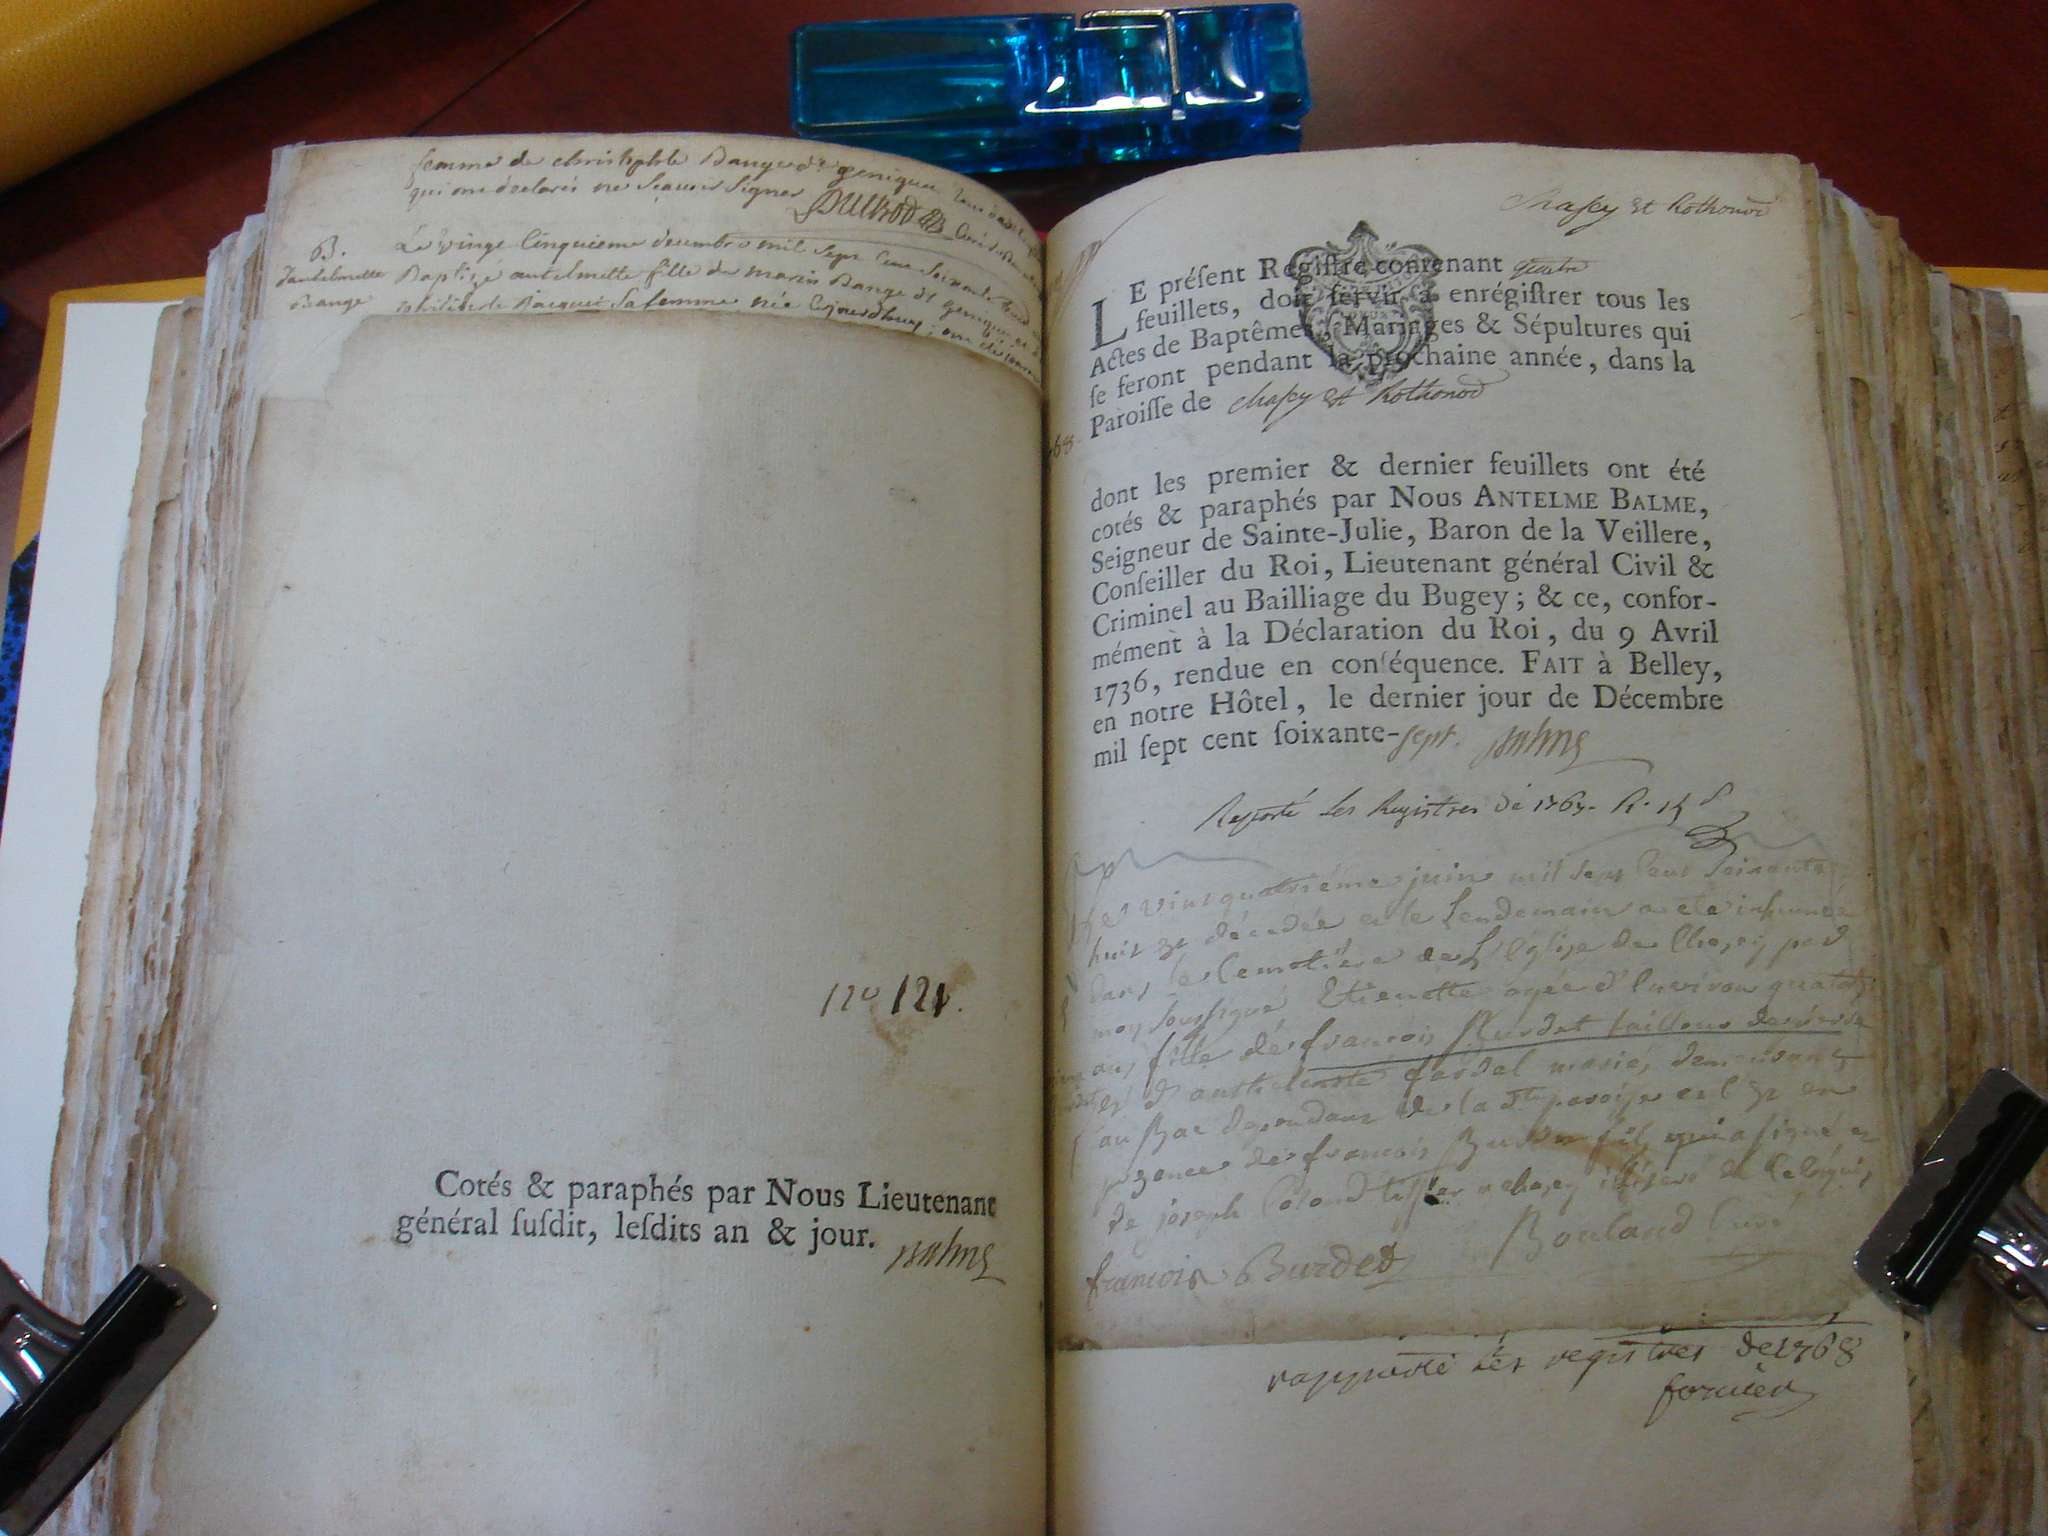 femme de christophle Bange dt genique
qui ont declarés ne scavoir signer
B. Le vingt Cinquieme decembre mil sept Cent Soixante
Bapt. antelmette fille de marin Bange dt genique et
Bange philiberte sa femme née aujourdhuy
120 121.
Cotés & paraphés par Nous Lieutenant
général ſuſdit, leſdits an & jour.
Chasey et Rothonod
LE préſent Regiſtre contenant quatre
feuillets, doit ſervir à enrégiſtrer tous les
Actes de Baptêmes, Mariages & Sépultures qui
ſe feront pendant la prochaine année, dans la
Paroiſſe de Chasey et Rothonod
68
dont les premier & dernier feuillets ont été
cotés & paraphés par Nous ANTELME BALME,
Seigneur de Sainte-Julie, Baron de la Veillere,
Conſeiller du Roi, Lieutenant général Civil &
Criminel au Bailliage du Bugey ; & ce, confor-
mément à la Déclaration du Roi, du 9 Avril
1736, rendue en conſéquence. FAIT à Belley,
en notre Hôtel, le dernier jour de Décembre
mil ſept cent ſoixante-sept. Balme
Raporté les Registres de 1767.
Le vint quatriéme juin mil sept Cent Soixante
huit est décedée et le Lendemain a eté inhumée
dans le Cemetiere de L'Eglise de Chasey par
moy soussigné Etienette agée d'environ quatorze
ans fille de francois Burdet tailleur de pierre
et d'anthelmette fardel mariés demeurants
au Bac dependant de la dte paroisse et l'est en
presence de francois Burdet fils qui a signé et
de joseph a chasey illiteré de Ce Requis
francois Burdet Bouland Curé
rapporté les registres de 1768